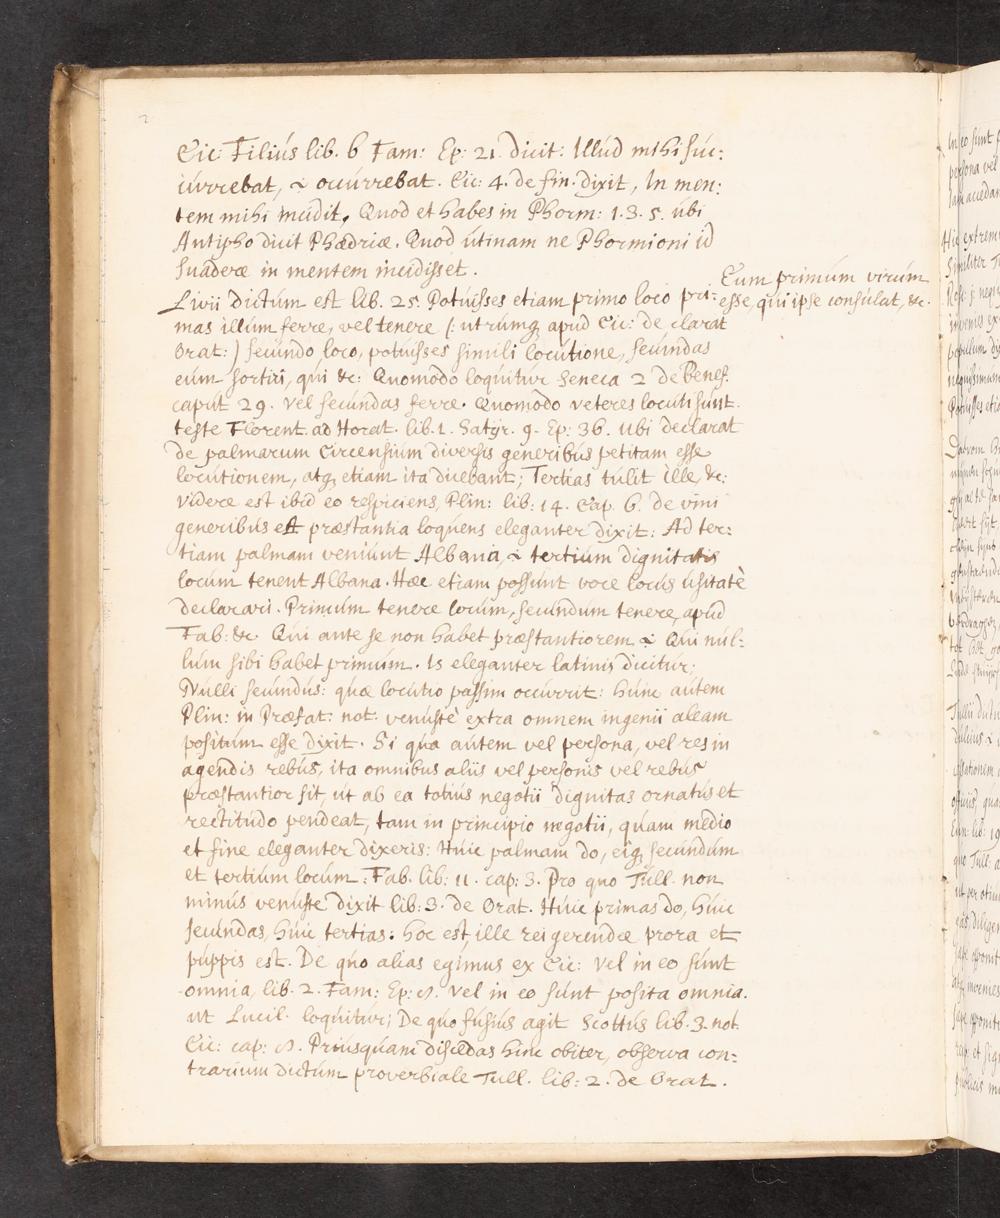 2
Cic: Filiús lib. 6 Fam: Ep: 21. dicit: Illúd mihi súc:
cúrrebat, & occúrrebat. Cic: 4. de fin. dixit, In men:
tem mihi incidit, Quod et habes in Phorm: 1. 3. 5. úbi
Antipho dicit Phædriæ. Quod útinam ne Phormioni id
suadere in mentem incidisset.
Eum primúm virúm
esse, qúi ipse consúlat, &c.
Livii dictúm est lib. 25. Potúisses etiam primo loco pri:
mas illúm ferre, vel tenere (: utrúmq apúd Cic: de clarat
Orat:) secúndo loco, potúisses simili locútione, secúndas
eúm sortiri, qúi &c: Quomodo loqúitúr Seneca 2 de Benef.
capút 29. vel secúndas ferre. Quomodo veteres locúti súnt.
teste Florent. ad Horat. lib. 1. Satÿr. 9. Ep: 36. Ubi declarat
de palmarum Circensiúm diversis generibús petitam esse
locútionem, atq etiam ita dicebant; Tertias túlit ille, &c;
videre est ibid eo respiciens, Plin: lib: 14. Cap. 6. de vini
generibús et præstantia loqúens eleganter dixit: Ad ter:
tiam palmam veniúnt Albana, & tertiúm dignitatis
locúm tenent Albana. Hæc etiam possúnt voce locús úsitatè
declarari. Primúm tenere locúm, secúndúm tenere, apúd
Fab: &c. Qúi ante se non habet præstantiorem & Qúi núl:
lúm sibi habet primúúm. Is eleganter latinis dicitúr;
Núlli secúndús: qúæ locútio passim occúrrit: húnc aútem
Plin: in Præfat: not: venústè extra omnem ingenii aleam
positúm esse dixit. Si qúa aútem vel persona, vel res in
agendis rebús, ita omnibus aliis vel personis vel rebús
præstantior sit, út ab ea totiús negotii dignitas ornatús et
rectitúdo pendeat, tam in principio negotii, qúam medio
et fine eleganter dixeris: Húic palmam do, eiq secúndúm
et tertiúm locúm: Fab. lib: 11. cap: 3. Pro qúo Túll. non
minús venúste dixit lib: 3. de Orat. Húic primas do, húic
secúndas, húic tertias: hoc est, ille rei gerendæ prora et
púppis est. De qúo alias egimus ex Cic: Vel in eo súnt
omnia, lib. 2. Fam: Ep: vel in eo súnt posita omnia.
ut Lucil. loqúitúr; De qúo fúsiús agit Scottús lib. 3. not.
Cic: cap: Priúsqúam discedas hinc obiter, observa con:
trariúm dictúm proverbiale Tull. lib: 2. de Orat.